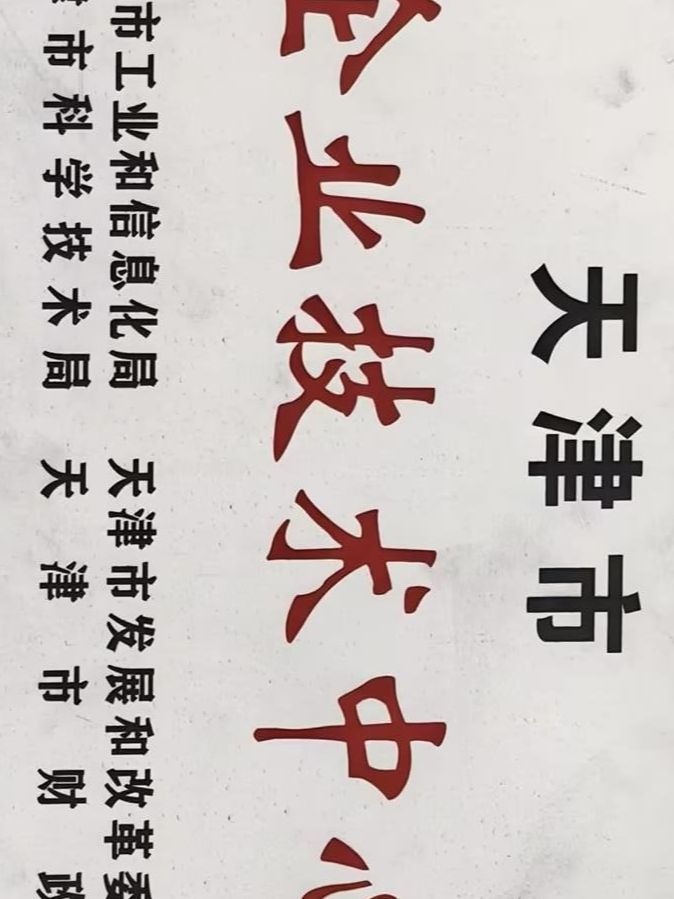 天津市
企业技术中心
市工业和信息化局 天津市发展和改革委
市科学技术局 天津市财政